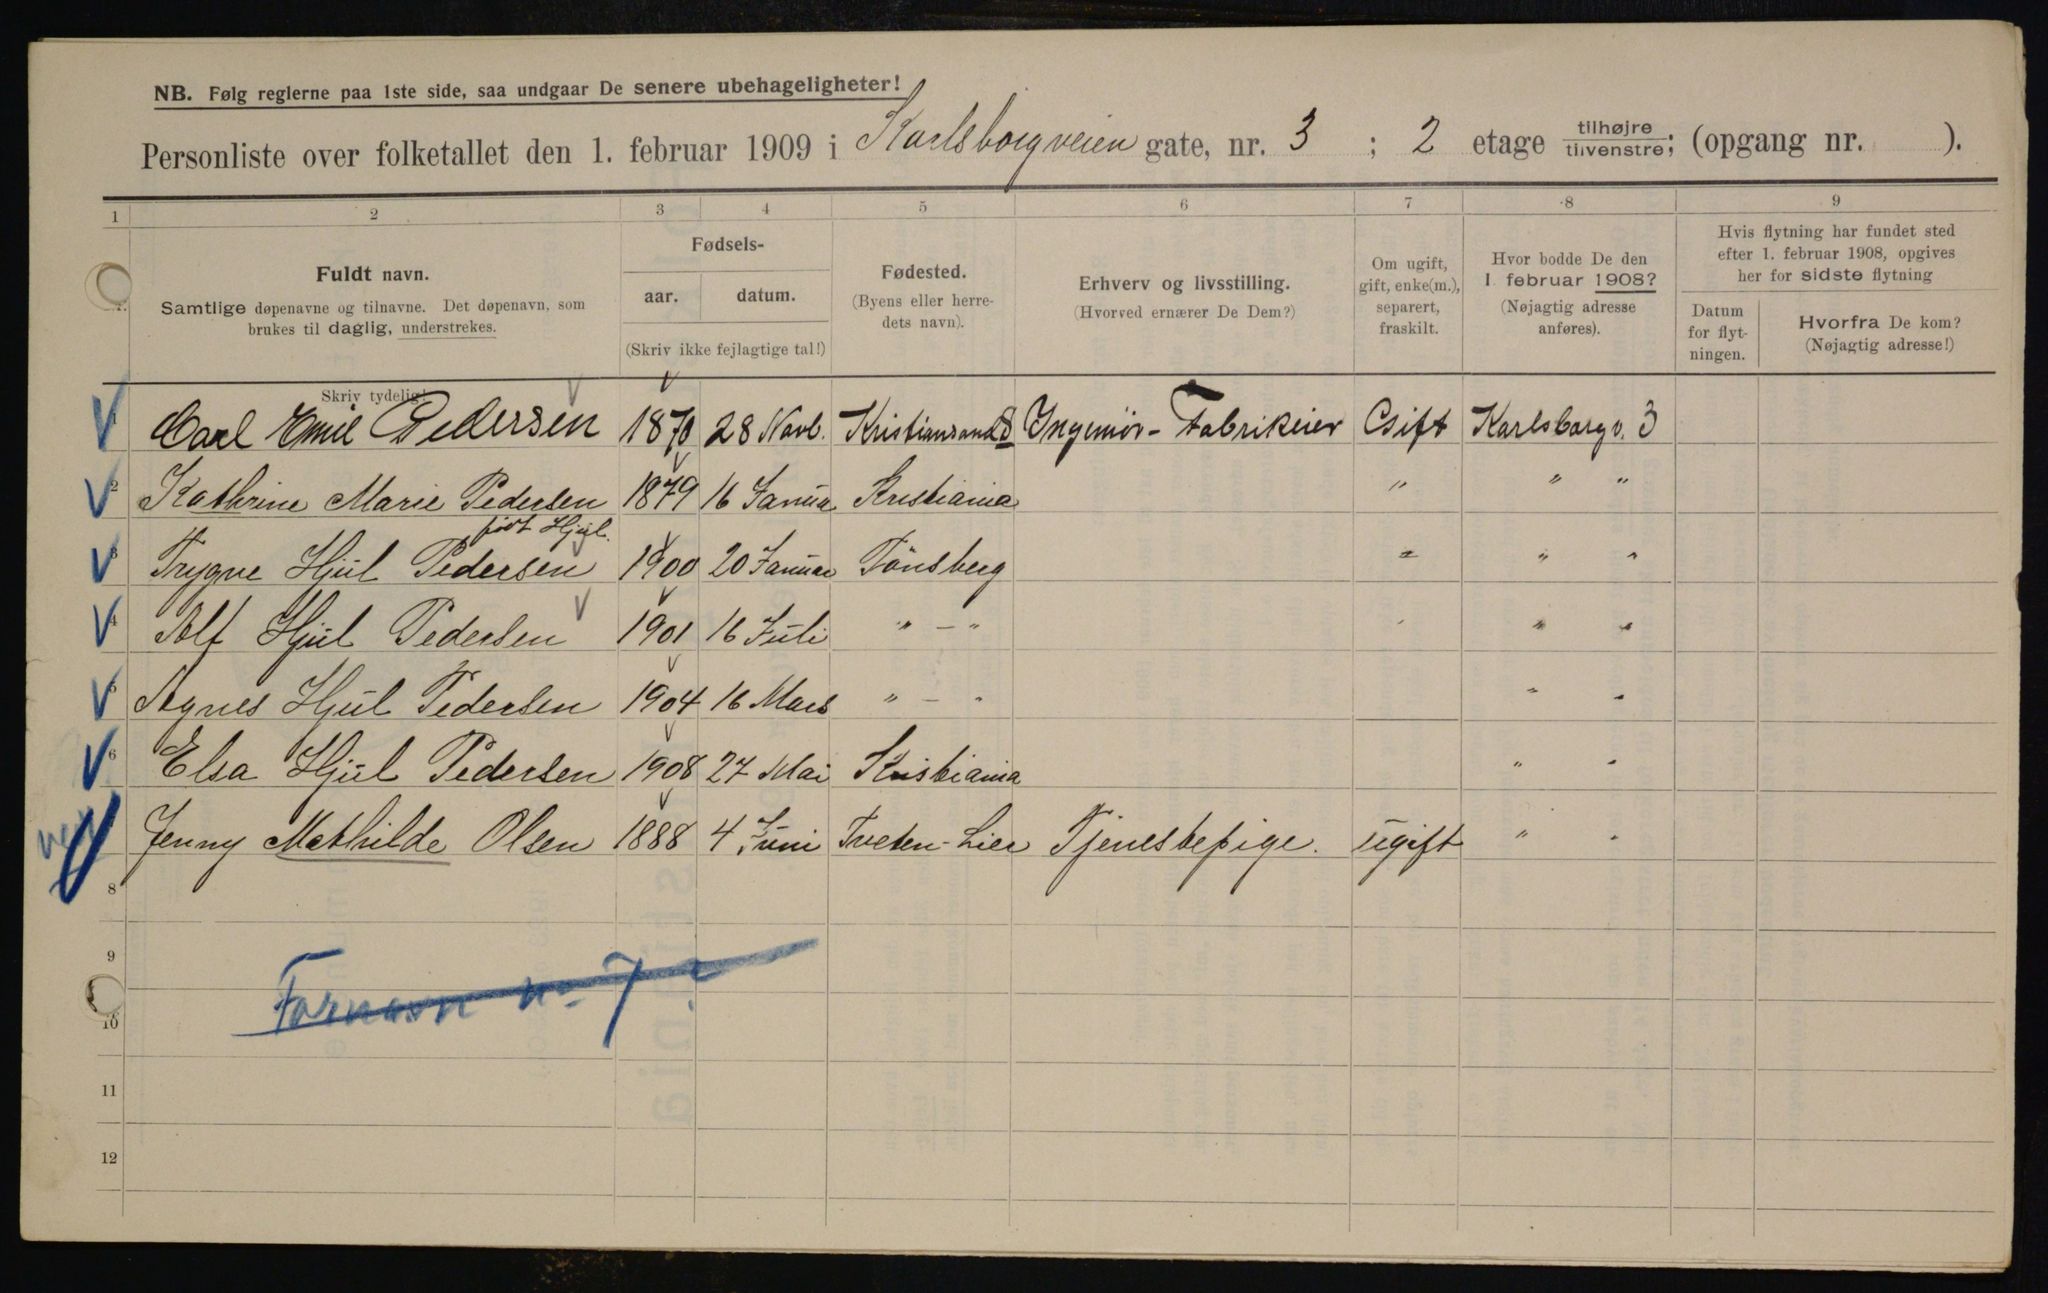 NB. Følg reglerne paa 1ste side, saa undgaar De senere ubehageligheter!
Personliste over folketallet den 1. februar 1909 i Karlsborgveien gate, nr. 3 ; 2 etage tilhøjre/tilvenstre; (opgang nr. ).
1 2 3 4 5 6 7 8 9
Fuldt navn.
Samtlige døpenavne og tilnavne. Det døpenavn, som
brukes til daglig, understrekes.
Skriv tydelig!
Fødsels-
aar. datum.
(Skriv ikke fejlagtige tal!)
Fødested.
(Byens eller herre-
dets navn).
Erhverv og livsstilling.
(Hvorved ernærer De Dem?)
Om ugift,
gift, enke(m.),
separert,
fraskilt.
Hvor bodde De den
1. februar 1908?
(Nøjagtig adresse
anføres).
Hvis flytning har fundet sted
efter 1. februar 1908, opgives
her for sidste flytning
Datum
for flyt-
ningen.
Hvorfra De kom?
(Nøjagtig adresse!)
1 Carl Emil Pedersen 1870 28 Novb. Kristiansand S Ingeniør - Fabrikeier Gift Karlsborgv. 3
2 Kathrine Marie Pedersen 1879 16 Janua Kristiania " " "
født Hjul.
3 Trygve Hjul Pedersen 1900 20 Januar Tönsberg " " "
4 Alf Hjul Pedersen 1901 16 Juli " - " " "
5 Agnes Hjul Pedersen 1904 16 Mars " - " " "
6 Elsa Hjul Pedersen 1908 27 Mai Kristiania " "
Jenny Mathilde Olsen 1888 4 Juni Tveten - Lier Tjenestepige. ugift " "
8
9
Fornavn no 7
10
11
12